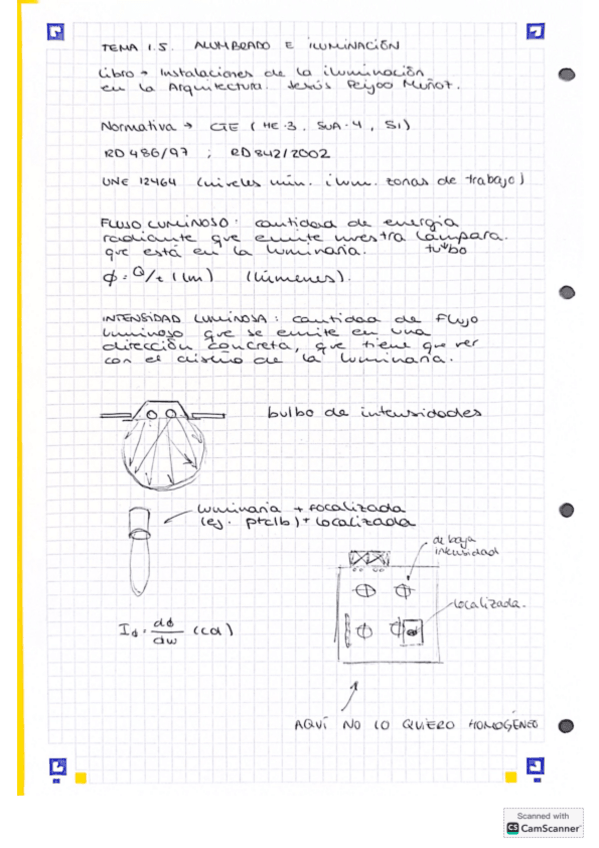 TEMA 1.5. ALUMBRADO E ILUMINACIÓN
Libro → Instalaciones de la iluminación
en la Arquitectura. Jesús Feijoo Muñoz.
Normativa → CTE (HE·3, SUA·4, SI)
RD 486/97 ; RD 842/2002
UNE 12464 (niveles min. ilum. zonas de trabajo)
FLUJO LUMINOSO: cantidad de energía
radiante que emite nuestra lámpara.
que está en la luminaria. tubo
ϕ = Q/t (lm) (lúmenes).
INTENSIDAD LUMINOSA: cantidad de flujo
luminoso que se emite en una
dirección concreta, que tiene que ver
con el diseño de la luminaria.
bulbo de intensidades
luminaria + focalizada
(ej. ) + localizada
de baja
intensidad
localizada.
I = dϕ/dw (cd)
AQUÍ NO LO QUIERO HOMOGÉNEO
Scanned with
CS CamScanner